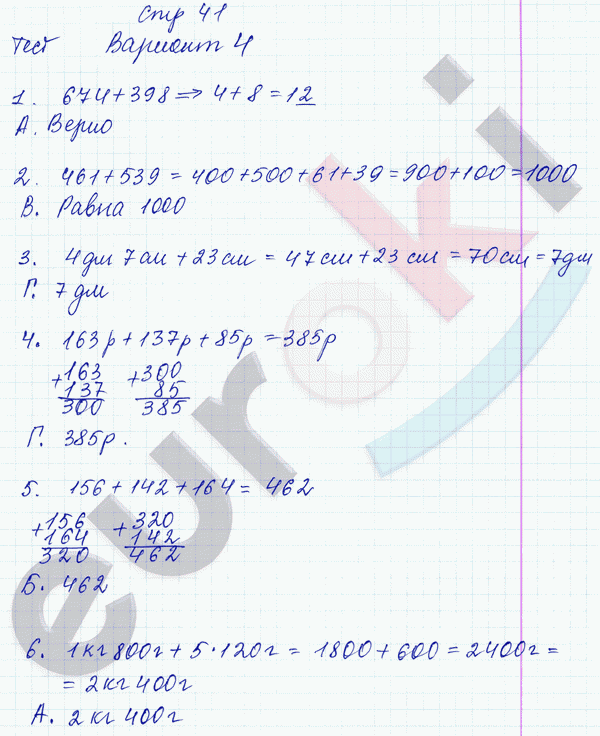 Стр 41
Тест Вариант 4
1. 674+398 ⇒ 4+8=12
А. Верно
2. 461+539 = 400+500+61+39=900+100=1000
В. Равна 1000
3. 4дм 7см + 23см = 47см+23 см = 70см=7дм
Г. 7 дм
4. 163р+137р+85р=385р
+163 +300
137 85
300 385
Г. 385р.
5. 156+142+164= 462
+156 +320
164 142
320 462
Б. 462
6. 1кг800г+5·120г = 1800+600=2400г=
= 2кг 400г
А. 2кг 400г
euroki